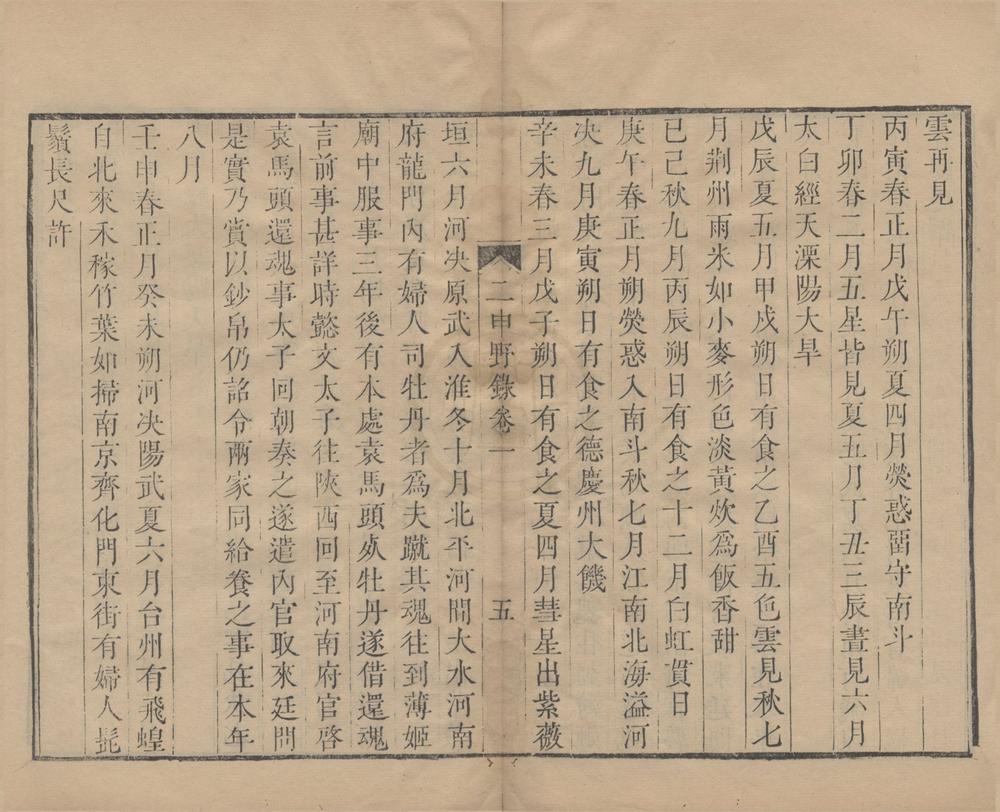 雲再見
丙寅春正月戊午朔夏四月熒惑畱守南斗
丁卯春二月五星皆見夏五月丁丑三辰晝見六月
太白經天溧陽大旱
戊辰夏五月甲戌朔日有食之乙酉五色雲見秋七
月荆州雨米如小麥形色淡黃炊爲飯香甜
已己秋九月丙辰朔日有食之十二月白虹貫日
庚午春正月朔熒惑入南斗秋七月江南北海溢河
决九月庚寅朔日有食之德慶州大饑
辛未春三月戊子朔日有食之夏四月彗星出紫薇
二申野錄卷一 五
垣六月河决原武入淮冬十月北平河間大水河南
府龍門內有婦人司牡丹者爲夫蹴其魂往到薄姬
廟中服事三年後有本處袁馬頭死牡丹遂借還魂
言前事甚詳時懿文太子往陝西回至河南府官啓
袁馬頭還魂事太子回朝奏之遂遣內官取來廷問
是實乃賞以鈔帛仍詔令兩家同給養之事在本年
八月
壬申春正月癸未朔河决陽武夏六月台州有飛蝗
自北來禾稼竹葉如掃南京齊化門東街有婦人髭
鬚長尺許